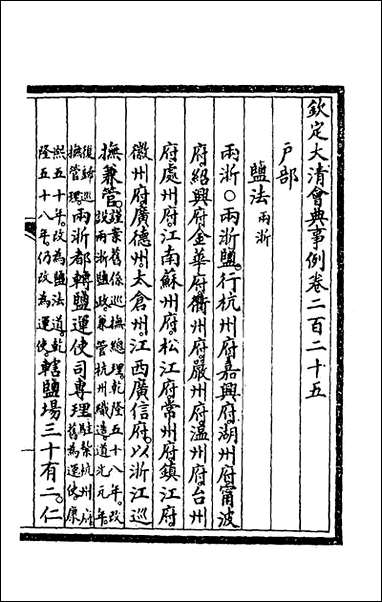 欽定大清會典事例卷二百二十五
戶部
鹽法兩浙
兩浙〇兩浙鹽。行杭州府。嘉興府。湖州府。甯波
府。紹興府。金華府。衢州府。嚴州府。溫州府。台州
府。處州府。江南蘇州府。松江府。常州府。鎮江府。
徽州府。廣德州。太倉州。江西廣信府。以浙江巡
撫兼管。謹案舊係巡撫總理。乾隆五十八年。改設兩浙鹽政。兼管杭州織造。道光元年。
復歸巡撫管理。兩浙都轉鹽運使司專理駐紮杭州府。舊為運使。康
熙五十年。改為鹽法道。乾隆五十八年。仍改為運使。轄鹽場三十有二。仁